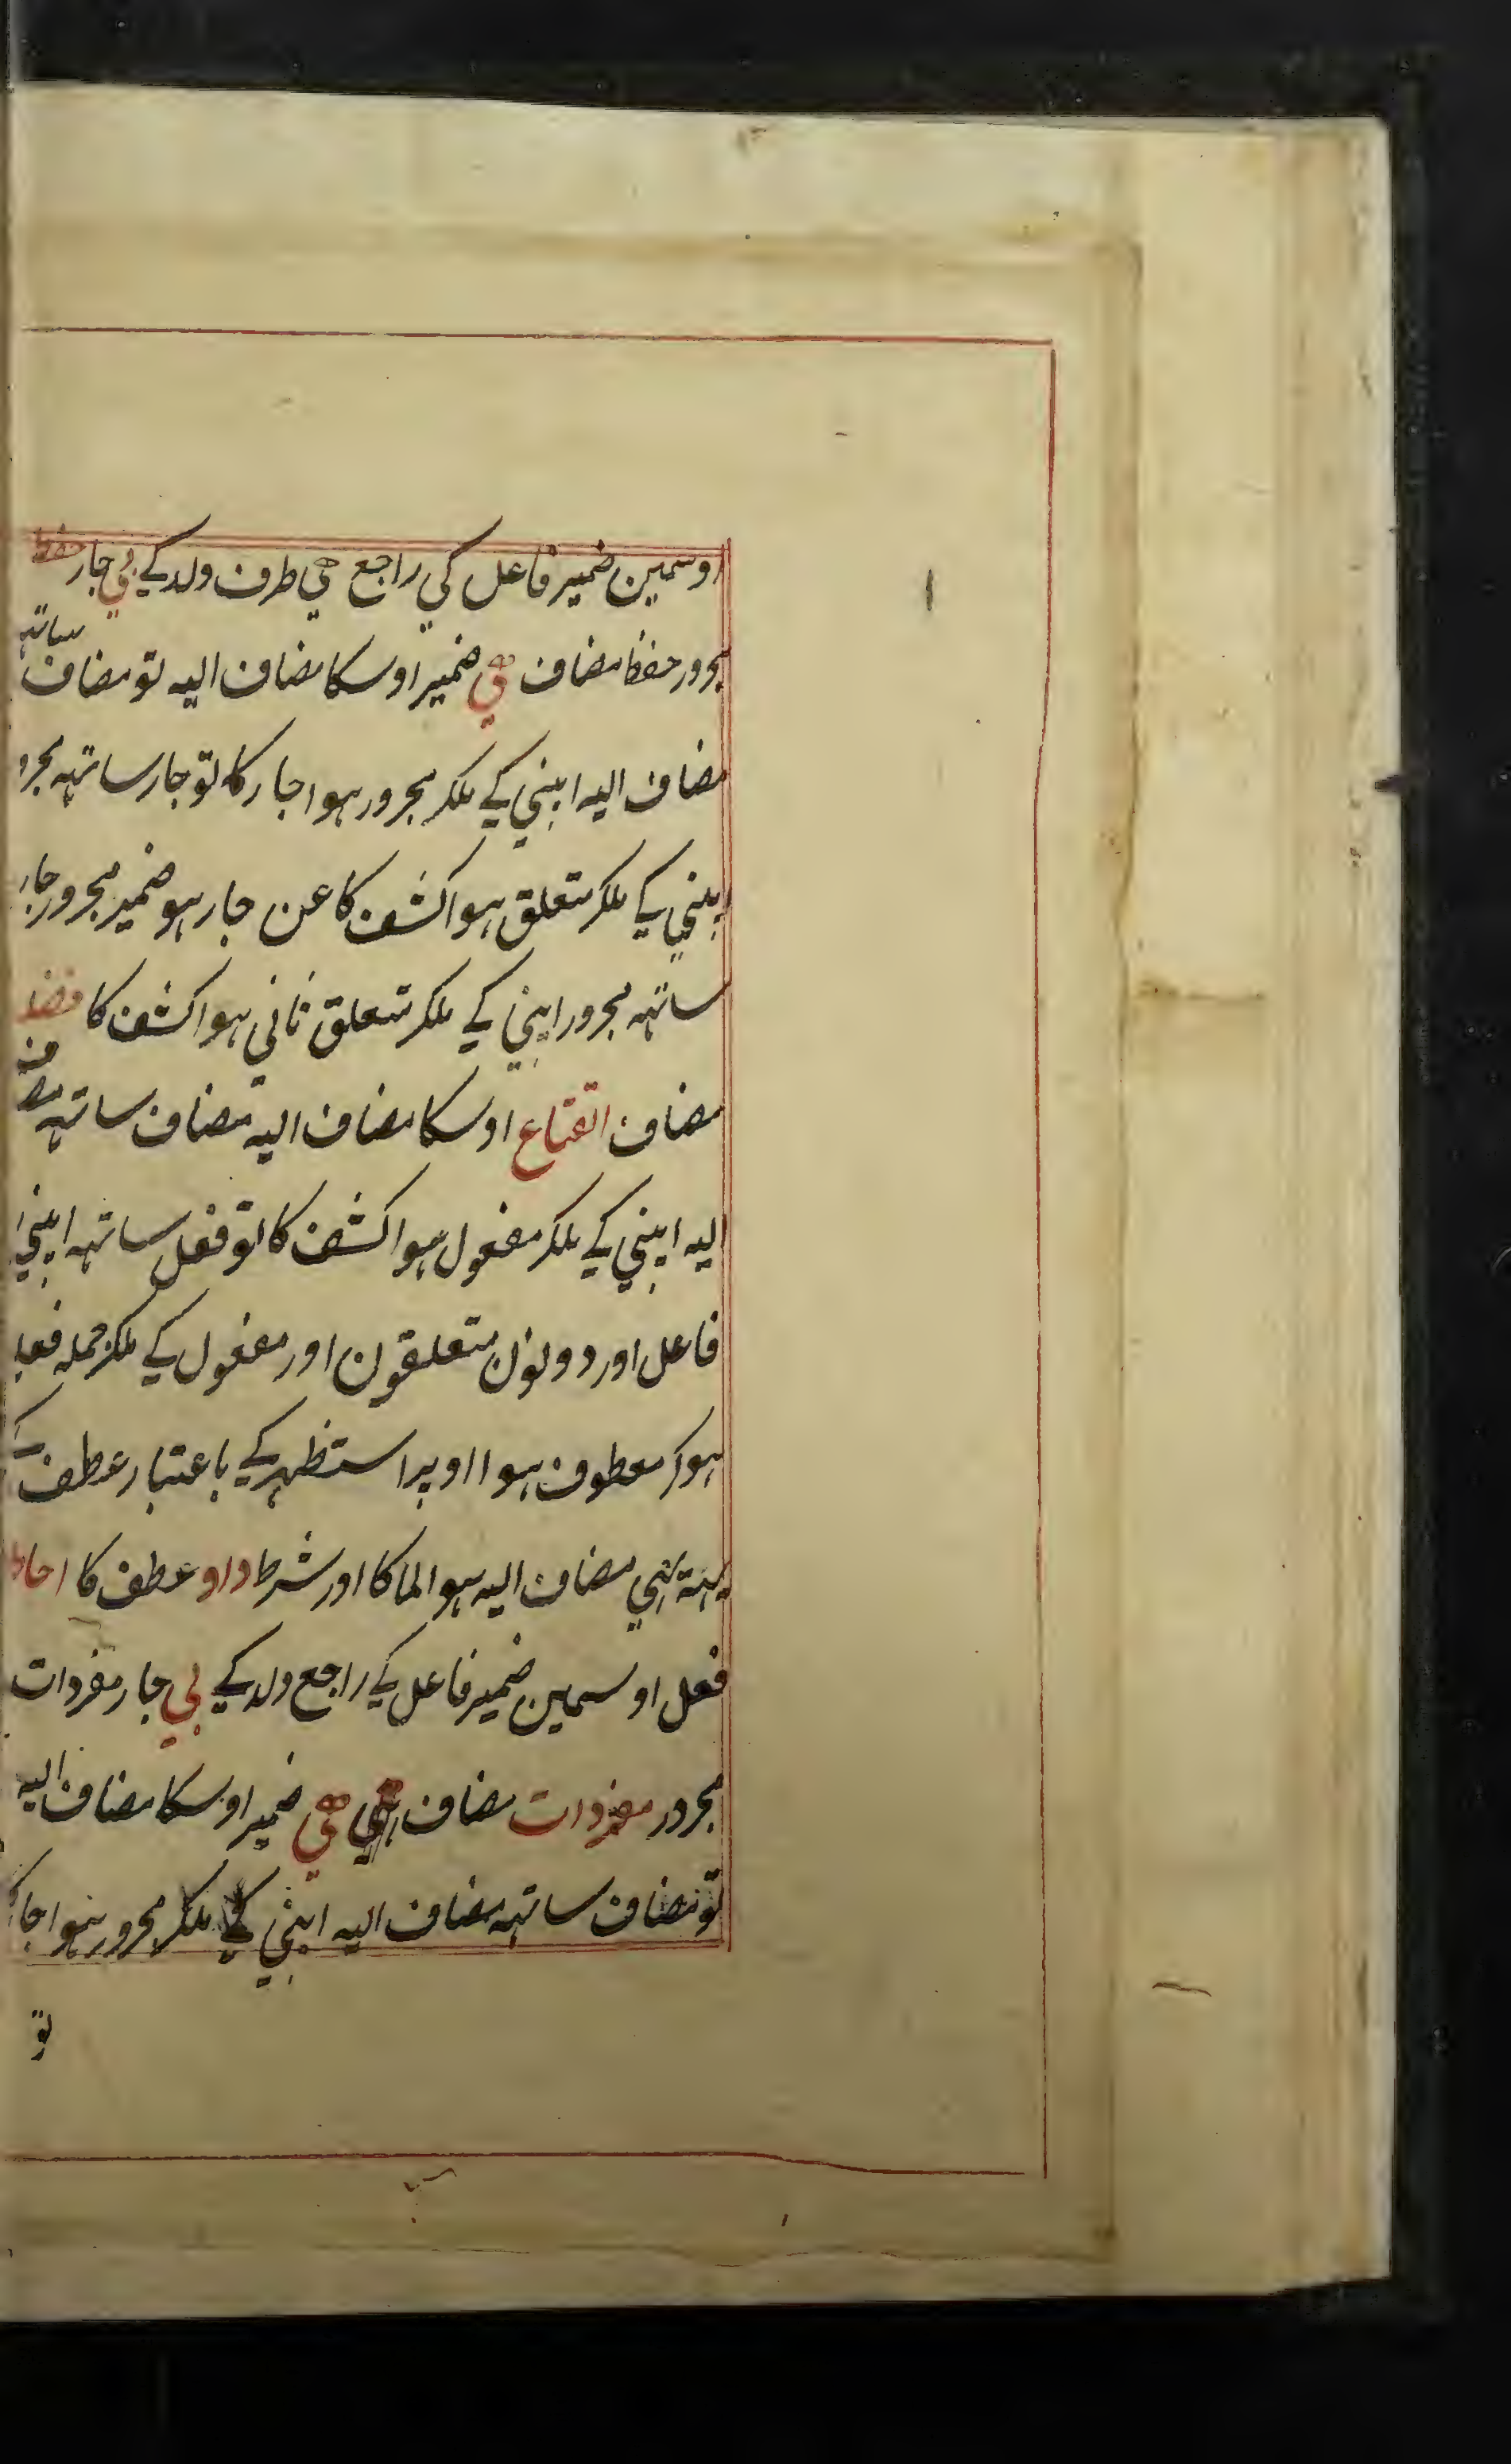 اوسمین ضمیر فاعل کي راجع هي طرف ولد کے بي جار حفظ
مجرور حفظ مضاف هي ضمیر اوسکا مضاف الیه تو مضاف ساتهه
مضاف الیه اپني کے ملکر مجرور ہوا جار کا تو جار ساتهه مجرو
اپني کے ملکر متعلق ہوا کشف کا عن جار ہو ضمیر مجرور جار
ساتهه مجرور اپني کے ملکر متعلق ثاني ہوا کشف کا
مضاف القناع اوسکا مضاف الیه مضاف ساتهه مضاف
الیه اپني کے ملکر مفعول ہوا کشف کا تو فعل ساتهه اپني
فاعل اور دونون متعلقون اور مفعول کے ملکر جمله فعلیه
ہوکر معطوف ہوا اوپر استظهر کے باعتبار عطف کے
یهه بهي مضاف الیه ہوا لما کا اور شرط واو عطف کا احاط
فعل اوسمین ضمیر فاعل کے راجع ولد کے بي جار مفردات
مجرور مفردات مضاف هي ضمیر اوسکا مضاف الیه
تو مضاف ساتهه مضاف الیه اپني کے ملکر مجرور ہوا جار کا
تو